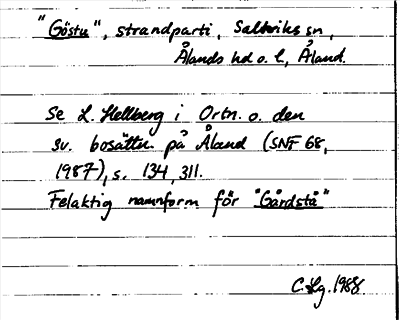 "Göstu", strandparti, Saltviks sn,
Ålands hd o. l, Åland.
Se L. Hellberg i Ortn. o. den
sv. bosättn. på Åland (SNF 68,
1987), s. 134, 311.
Felaktig namnform för "Gårdstå"
C. Lg. 1988.